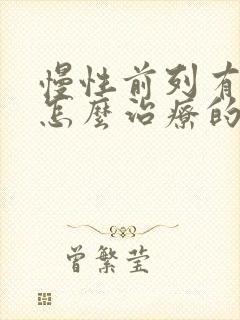 慢性前列有
怎麼治療的
曾繁莹